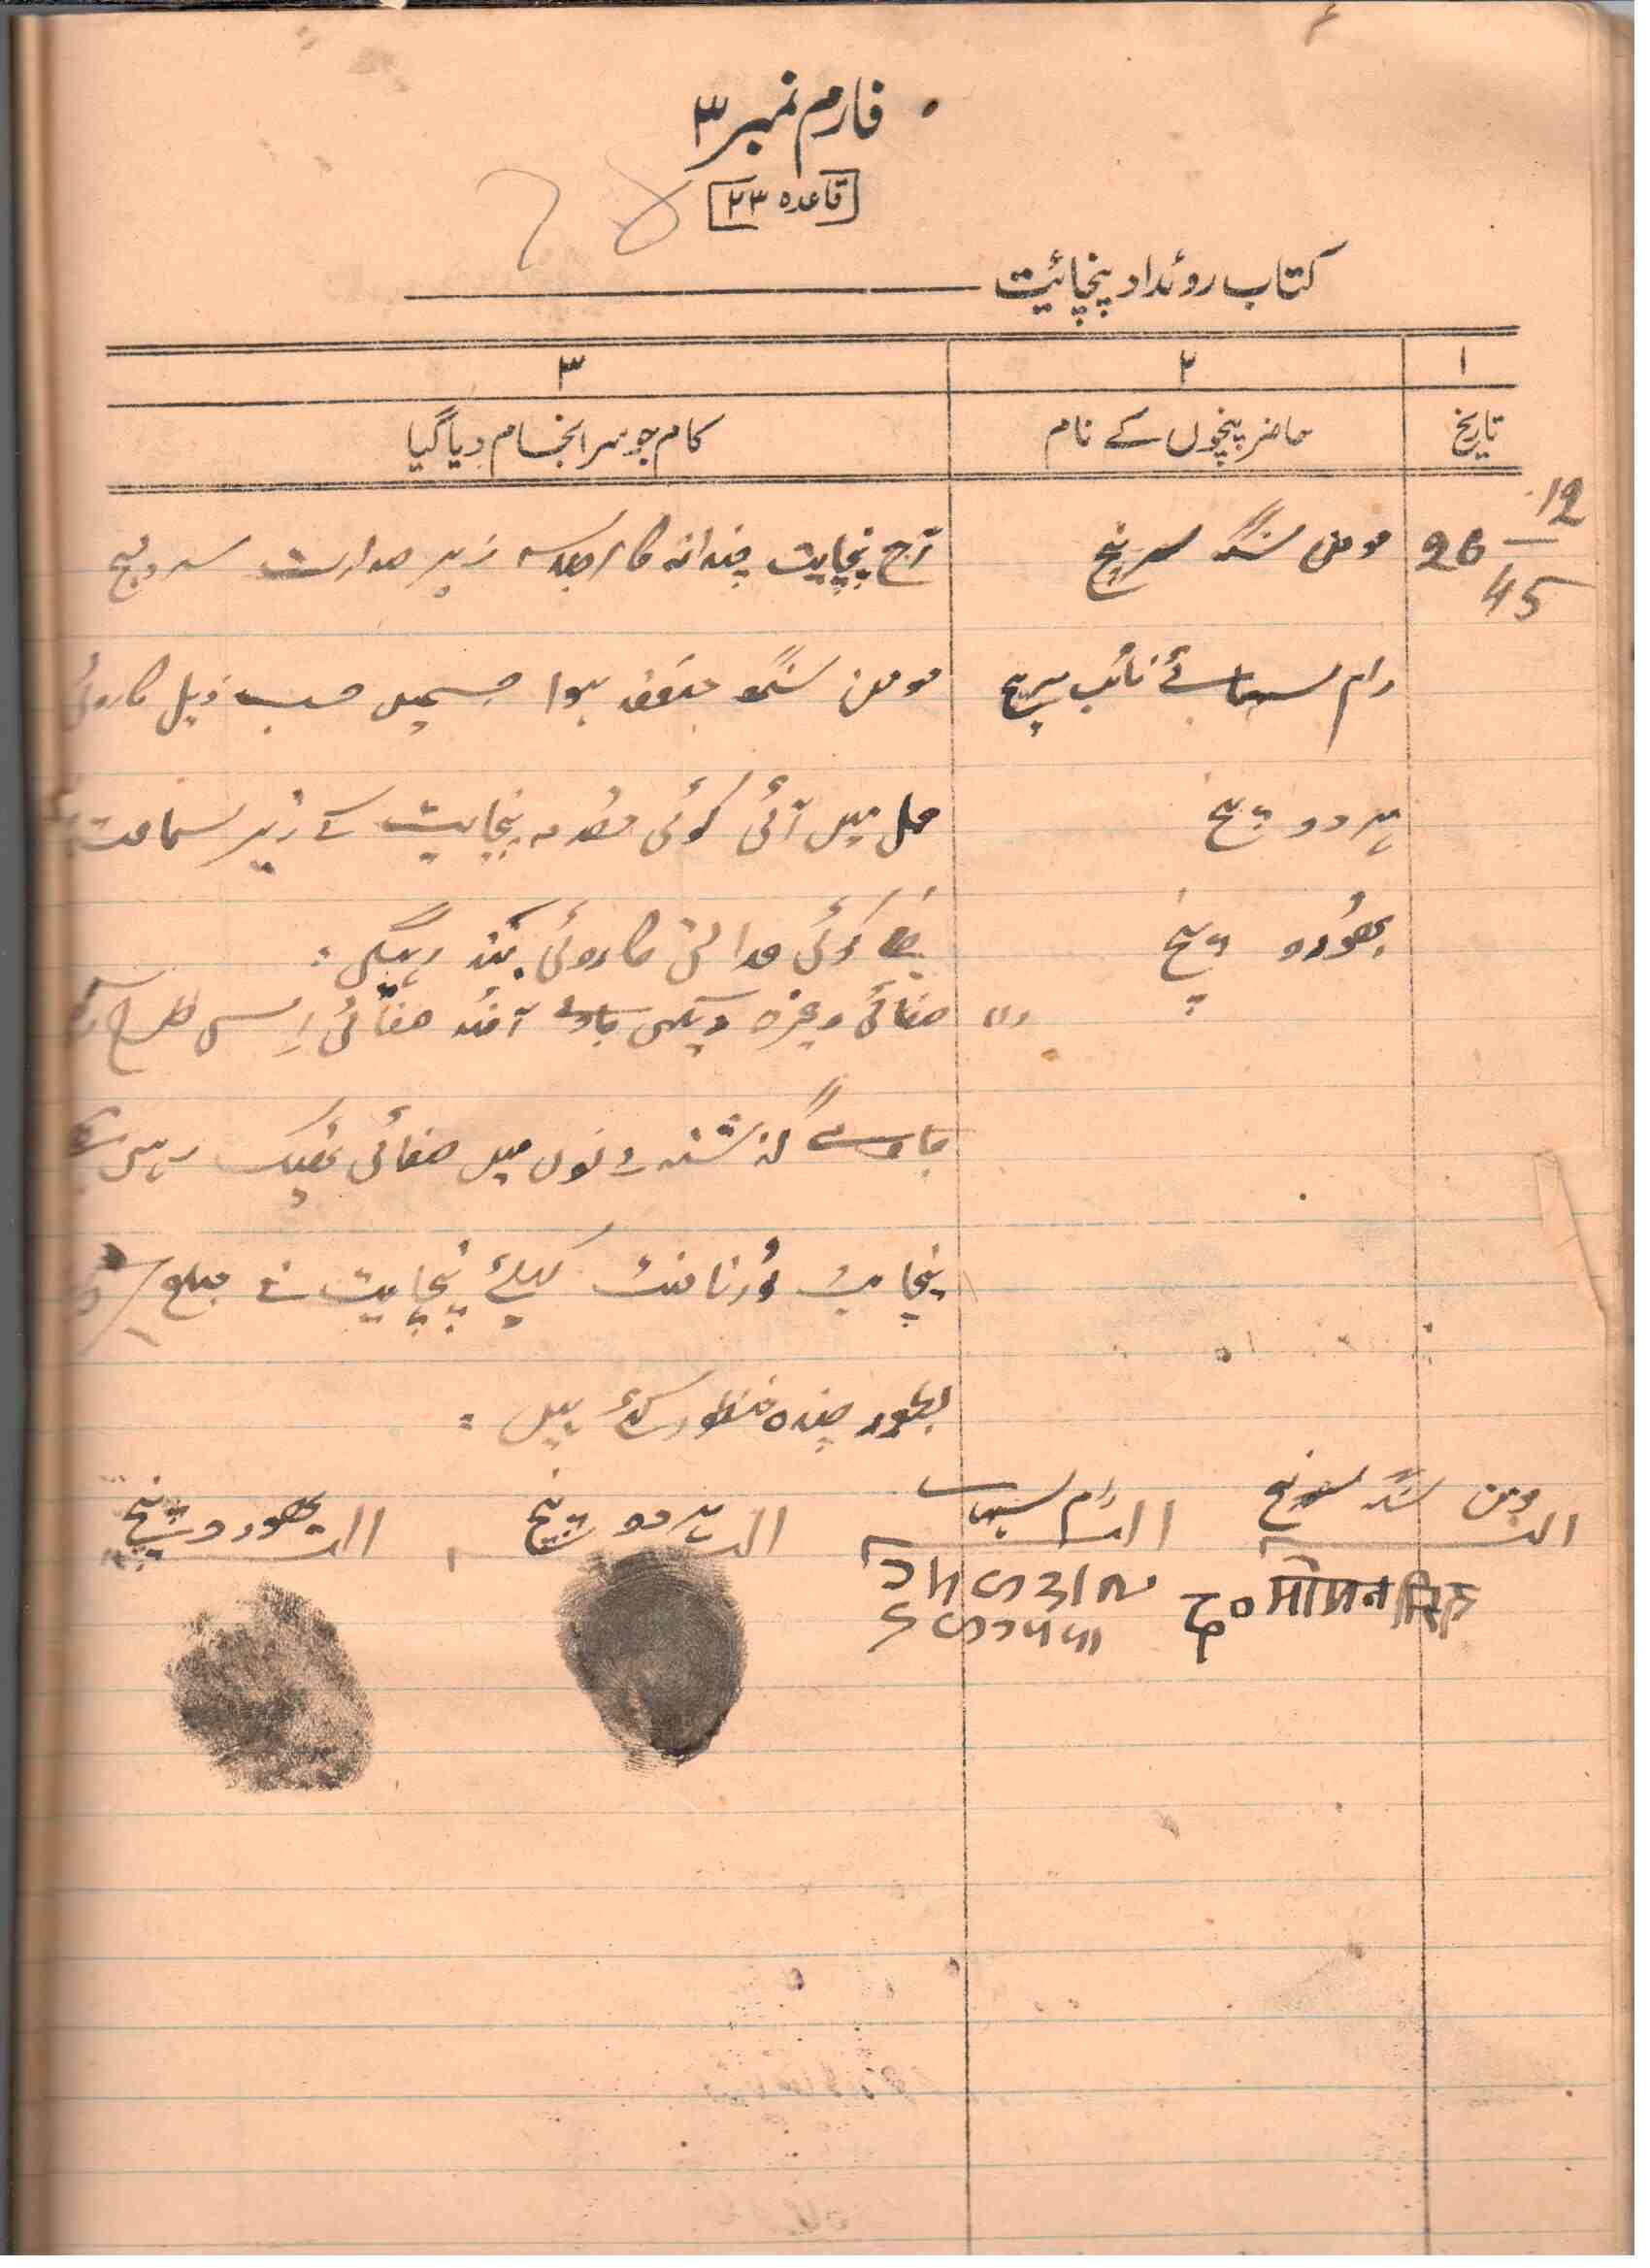 فارم نمبر ۳
قاعدہ ۲۳
کتاب روئداد پنچائیت
۱ ۲ ۳
تاریخ حاضر پنچوں کے نام کام جو سرانجام دیا گیا
26/12/45 مومن سنگھ سرپنچ آج پنچایت کا اجلاس زیر صدارت سرپنچ
رام سہائے نائب سرپنچ مومن سنگھ منعقد ہوا جسمیں حسب ذیل کاروائی
ہردو پنچ عمل میں آئی کوئی مقدمہ پنچایت کے زیر سماعت
بھورو پنچ کوئی عدالتی کاروائی بند رہیگی
(۱) صفائی وغیرہ دیکھی جاوے آئندہ صفائی اسی طرح
جاوے گذشتہ دنوں میں صفائی ٹھیک رہی
پنچایت ٹورنامنٹ کیلئے پنچایت نے مبلغ
بطور چندہ منظور کئے ہیں
العبد مومن سنگھ سرپنچ العبد رام سہائے العبد ہردو پنچ العبد بھورو پنچ
ह० मोमन सिंह